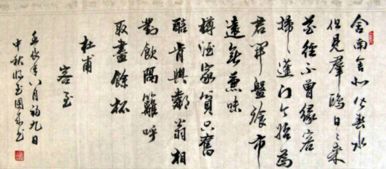 舍南舍北皆春水
但見羣鷗日日來
花徑不曾緣客
掃蓬門今始為
君開盤飧市
遠無兼味
樽酒家貧只舊
醅肯與鄰翁相
對飲隔籬呼
取盡餘杯
杜甫 客至
年八月初九日
中秋